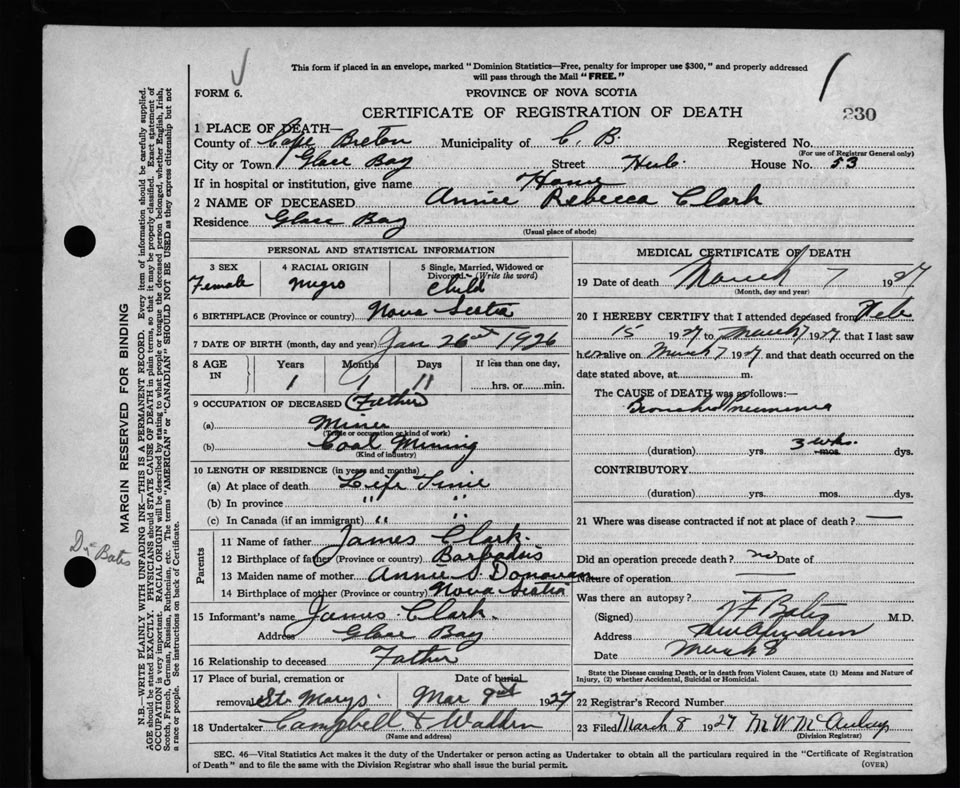 This form if placed in an envelope, marked "Dominion Statistics—Free, penalty for improper use $300," and properly addressed
will pass through the Mail "FREE."
FORM 6.
PROVINCE OF NOVA SCOTIA
CERTIFICATE OF REGISTRATION OF DEATH
230
1 PLACE OF DEATH—
County of Cape Breton Municipality of C. B. Registered No.
(For use of Registrar General only)
City or Town Glace Bay Street Hub House No. 53
If in hospital or institution, give name Home
2 NAME OF DECEASED Annie Rebecca Clark
Residence Glace Bay
(Usual place of abode)
PERSONAL AND STATISTICAL INFORMATION
3 SEX 4 RACIAL ORIGIN 5 Single, Married, Widowed or
Divorced.—(Write the word)
Female Negro Child
6 BIRTHPLACE (Province or country) Nova Scotia
7 DATE OF BIRTH (month, day and year) Jan 26th 1926
8 AGE IN Years Months Days If less than one day,
1 1 11 hrs. or min.
9 OCCUPATION OF DECEASED (Father)
(a) Miner
(Trade or occupation or kind of work)
(b) Coal Mining
(Kind of industry)
10 LENGTH OF RESIDENCE (in years and months)
(a) At place of death Life Time
(b) In province " "
(c) In Canada (if an immigrant) " "
Parents
11 Name of father James Clark.
12 Birthplace of father (Province or country) Barbados
13 Maiden name of mother Annie S. Donovan
14 Birthplace of mother (Province or country) Nova Scotia
15 Informant's name James Clark.
Address Glace Bay
16 Relationship to deceased Father
17 Place of burial, cremation or Date of burial
removal St. Marys. Mar 9th 1927
18 Undertaker Campbell & Wadden
(Name and address)
MEDICAL CERTIFICATE OF DEATH
19 Date of death March 7 1927
(Month, day and year)
20 I HEREBY CERTIFY that I attended deceased from Feb
15 1927 to March 7 1927 that I last saw
her alive on March 7 1927, and that death occurred on the
date stated above, at m.
The CAUSE of DEATH was as follows:
Broncho Pneumonia
(duration) yrs. 3 wks. mos. dys.
CONTRIBUTORY
(duration) yrs. mos. dys.
21 Where was disease contracted if not at place of death? —
Did an operation precede death? no Date of
Nature of operation —
Was there an autopsy? —
(Signed) Bates M.D.
Address New Aberdeen
Date March 8
State the Disease causing Death, or in death from Violent Causes, state (1) Means and Nature of
Injury, (2) whether Accidental, Suicidal or Homicidal.
22 Registrar's Record Number
23 Filed March 8 1927 M. W. McAulay
(Division Registrar)
SEC. 46—Vital Statistics Act makes it the duty of the Undertaker or person acting as Undertaker to obtain all the particulars required in the "Certificate of Registration
of Death" and to file the same with the Division Registrar who shall issue the burial permit.
(OVER)
MARGIN RESERVED FOR BINDING
N.B.—WRITE PLAINLY WITH UNFADING INK—THIS IS A PERMANENT RECORD. Every item of information should be carefully supplied.
AGE should be stated EXACTLY. PHYSICIANS should STATE CAUSE OF DEATH in plain terms, so that it may be properly classified. Exact statement of
OCCUPATION is very important. RACIAL ORIGIN will be described by stating to what people or tongue the deceased person belonged, whether English, Irish,
Scotch, French, German, Russian, Ruthenian, etc. The terms "AMERICAN" or "CANADIAN" SHOULD NOT BE USED as they express citizenship but not
a race or people. See instructions on back of Certificate.
Dr Bates